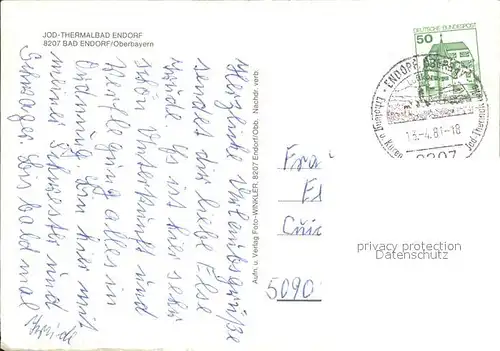 JOD-THERMALBAD ENDORF
8207 BAD ENDORF/Oberbayern
Herzliche Urlaubsgrüße
sendet dir liebe Else
Es ist hier sehr
schön Unterkunft und
Verpflegung alles in
Ordnung. Bin hier mit
meiner Schwester und
Schwager. Bis bald mal
Aufn. u. Verlag Foto-WINKLER, 8207 Endorf/Obb. Nachdr. verb.
DEUTSCHE BUNDESPOST
50
ENDORF, OBERBAY
13.-4.81-18
8207
Erholung u. Kuren
Jod-Thermal
Frau
El
5090
privacy protection
Datenschutz